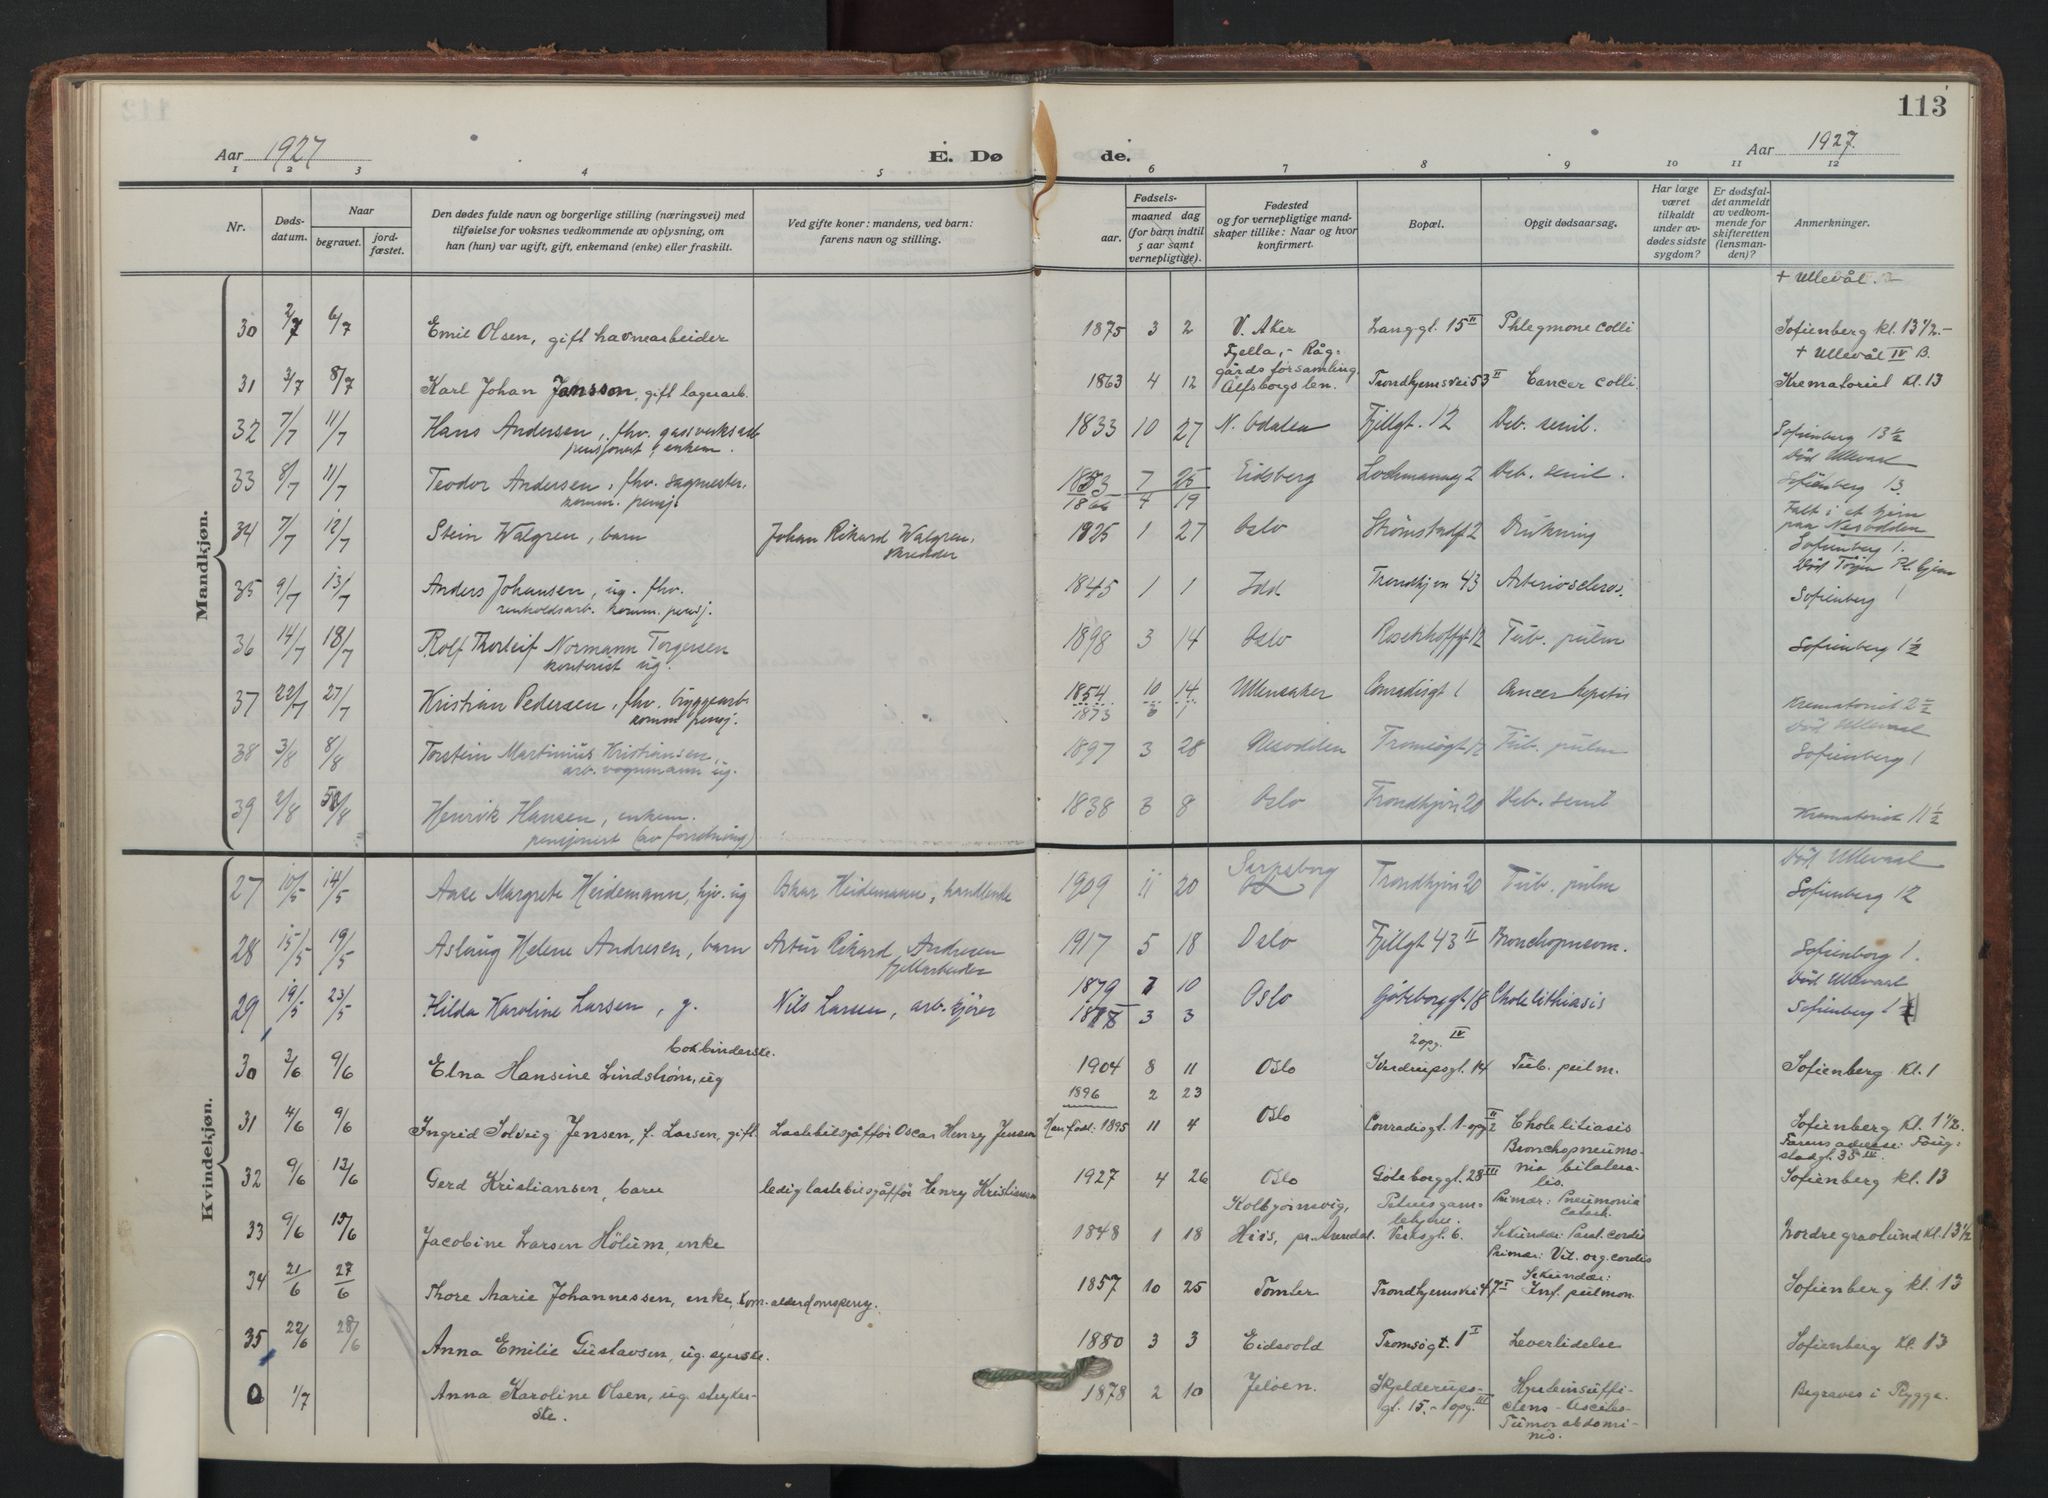 113
Aar 1927
E. Dø
de.
Aar 1927.
1 2 3 4 5 6 7 8 9 10 11 12
Nr.
Døds-
datum.
Naar
begravet.
jord-
fæstet.
Den dødes fulde navn og borgerlige stilling (næringsvei) med
tilføielse for voksnes vedkommende av oplysning, om
han (hun) var ugift, gift, enkemand (enke) eller fraskilt.
Ved gifte koner: mandens, ved barn:
farens navn og stilling.
Fødsels-
aar.
maaned dag
(for barn indtil
5 aar samt
vernepligtige).
Fødested
og for vernepligtige mand-
skaper tillike: Naar og hvor
konfirmert.
Bopæl.
Opgit dødsaarsag.
Har læge
været
tilkaldt
under av-
dødes sidste
sygdom?
Er dødsfal-
det anmeldt
av vedkom-
mende for
skifteretten
(lensman-
den)?
Anmerkninger.
Mandkjøn.
+ Ullevål
30 2/7 6/7 Emil Olsen, gift havnearbeider 1875 3 2 V. Aker Langgt. 15 II Phlegmone colli Sofienberg kl. 13 1/2.-
Fjella, - Råg- + Ullevål IV B.
gårds forsamling
31 3/7 8/7 Karl Johan Jansson, gift lagerarb. 1863 4 12 Älfsborgs len. Trondhjemsvei 53 II Cancer colli Krematoriet Kl. 13
32 7/7 11/7 Hans Andersen, fhv. gassverksarb 1833 10 27 N. Odalen Fjellgt. 12 Deb. senil. Sofienberg 13 1/2
pensjonert, enkem. Död Ullevaal
33 8/7 11/7 Teodor Andersen, fhv. sagmester. 1853 7 25 Eidsberg Lochmannsg 2 Deb. senil. Sofienberg 13.
komm. pensj. 1866 4 19
Falt i et tjern
paa Nesodden
34 7/7 12/7 Stein Walgren, barn Johan Rikard Walgren, 1925 1 27 Oslo Strömstadgt 2 Drukning Sofienberg 1.
skredder
35 9/7 13/7 Anders Johansen, ug. fhv. 1845 1 1 Idd Trondhjvn 43 Arterioscleros. Sofienberg 1
renholdsarb. komm. pensj.
36 14/7 18/7 Rolf Thorleif Normann Torgersen 1898 3 14 Oslo Rosenhoffgt 12 Tub. pulm Sofienberg 1 1/2
kontorist ug.
37 22/7 27/7 Kristian Pedersen, fhv. byggearb. 1854 10 14 Ullensaker Conradisgt 1 Cancer hepatis Krematoriet 2 1/2
komm pensj. 1873 6 1
Död Ullevaal
38 3/8 8/8 Torstein Martinius Kristiansen, 1897 3 28 Nesodden Tromsøgt 12 Tub. pulm Sofienberg 1
arb. vognmann ug.
39 2/8 8/8 Henrik Hansen, enkem. 1838 3 8 Oslo Trondhjvn 20 Deb. senil Krematoriet 11 1/2
pensjonert (av forretning)
Kvindekjøn.
Död Ullevaal
27 10/5 14/5 Aase Margrete Heidemann, hjv. ug Oskar Heidemann, handlende 1909 11 20 Sarpsborg Trondhjvn 20 Tub. pulm Sofienberg 12
28 15/5 19/5 Aslaug Helene Andresen, barn Artur Rikard Andresen 1917 5 18 Oslo Fjellgt 43 II Bronchopneum. Sofienberg 1.
fjellarbeider
Död Ullevaal
29 19/5 23/5 Hilda Karoline Larsen, g. Nils Larsen, arb. kjörer 1879 7 10 Oslo Göteborggt 18 Cholelithiasis Sofienberg 1
3 3
bokbinderske. 2 opg. IV
30 3/6 9/6 Elna Hansine Lindstrøm, ug 1904 8 11 Oslo Sverdrupsgt. 14 Tub. pulm. Sofienberg Kl. 1
1896 2 23
31 4/6 9/6 Ingrid Solveig Jensen, f. Larsen, gift. Lastebilsjåffør Oscar Henry Jensen Han født. 1895 11 4 Oslo Conradisgt. 1 - opg 2 II Cholelitiasis Sofienberg Kl. 1 1/2.
Farens adresse: Foug-
stadgt. 35 III.
Bronchopneumo-
32 9/6 13/6 Gerd Kristiansen, barn ledig lastebilsjåffør Henry Kristiansen 1927 4 26 Oslo Göteborggt. 28 III nia bilatera- Sofienberg kl. 13
lis.
Kolbjörnsvig, Petrus gam- Primær: Pneumonia
lehjem. catarh.
33 9/6 15/6 Jacobine Larsen Hölum, enke 1848 1 18 Hiis, pr. Arendal. Verksgt. 6. Sekundær: Paral. cordis Nordre gravlund Kl. 13 1/2
Primær: Vit. org. cordis
Sekundær:
34 21/6 27/6 Thore Marie Johannessen, enke, kom. alderdomspensj. 1857 10 25 Tomter Trondhjemsvei 47 I Inf. pulmon. Sofienberg kl. 13
35 22/6 28/6 Anna Emilie Gustavsen, ug. syerske. 1880 3 3 Eidsvold Tromsögt. 1 I Leverlidelse Sofienberg Kl. 13
0 1/7 Anna Karoline Olsen, ug. stryker- 1878 2 10 Jeløen. Skjelderups- Hjerteinsuffi- Begraves i Rygge.
ske. gt. 15. - 1 opg. III ciens - Ascites-
Tumor abdomi-
nis.